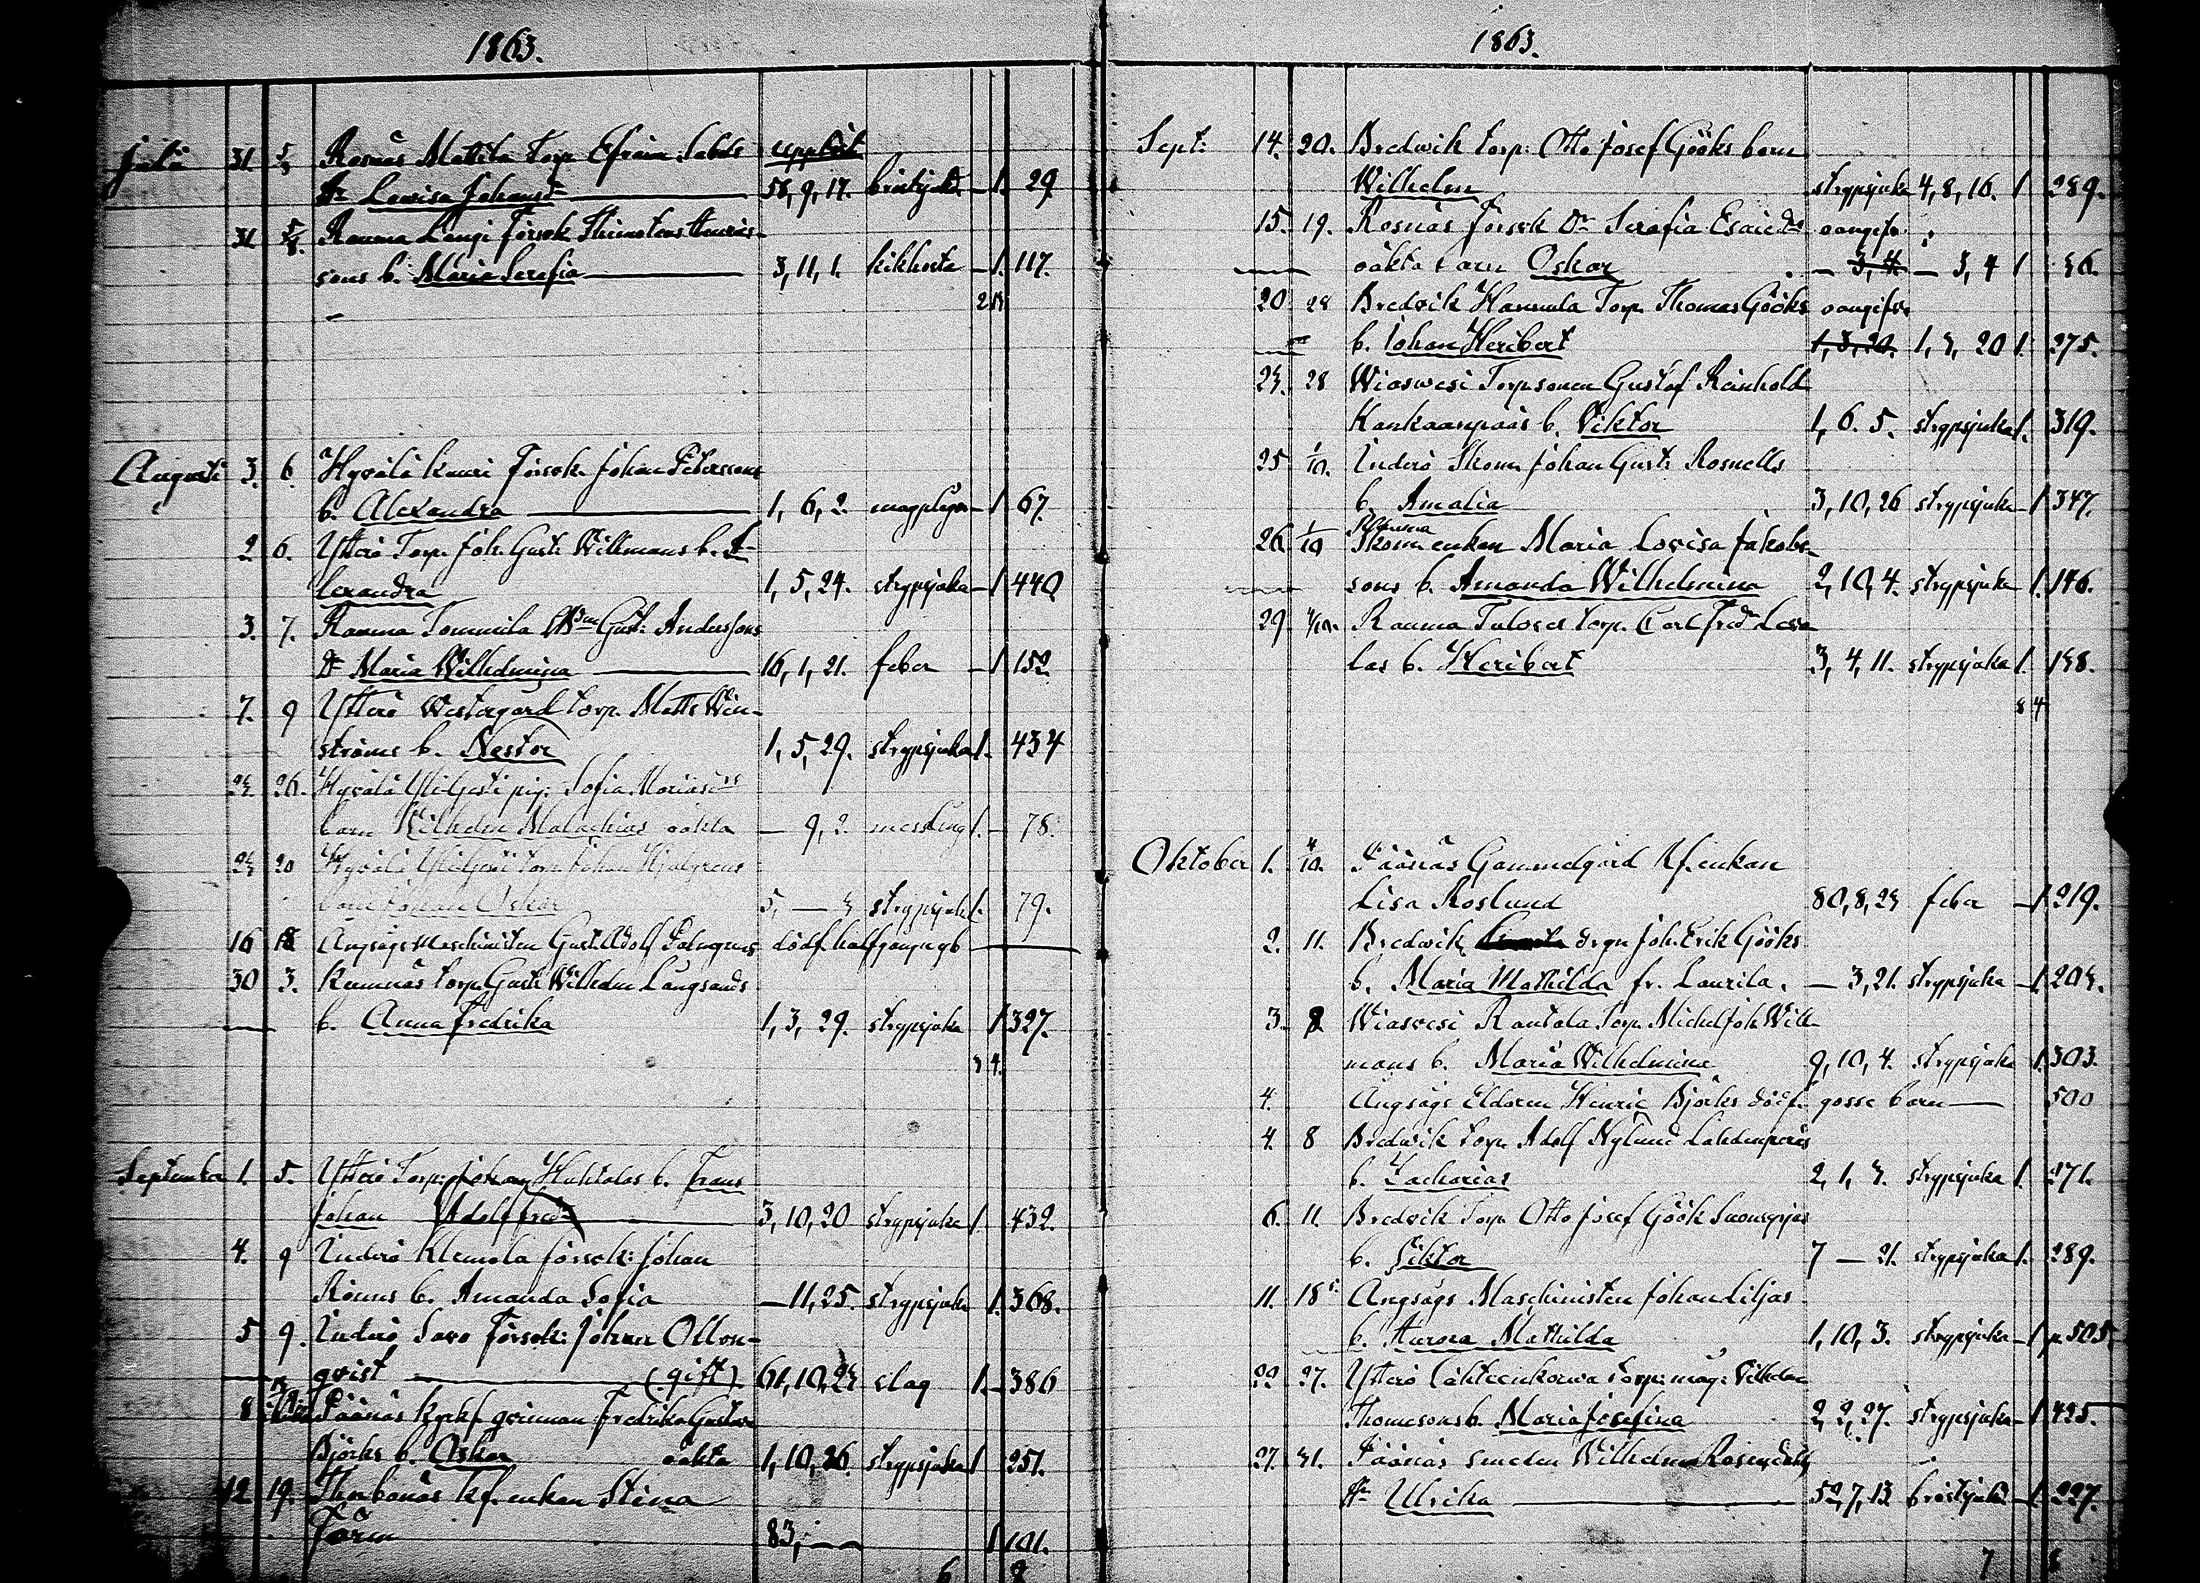 1863.
Juli 31. 5/8 Rosnäs Mattila Torp. Efraim Sabels
Hr Lovisa Johansdr 58, 9, 17. bröstsjukd. 1. 29
31 5/8. Rauma Langi Försvk Thimoteus Henriks-
sons b. Maria Serafia 3, 11, 1. kikhosta 1. 117.
2
Augusti 3. 6. Hyvälä Knuri Försvk. Johan Peterssons
b. Alexandra 1, 6, 2. magplågor 1 67.
2 6. Ytterö Torp. Joh. Gust. Willmans b. A-
lexandra 1, 5, 24. strypsjuka 1 440
3. 7. Rauma Tommila Gust: Anderssons
Dr Maria Wilhelmina 16, 1, 21. feber 1 152
7. 9 Ytterö Westergård torp. Matts Win-
ströms b. Nestor 1, 5, 29. strypsjuka 1. 434
24. 26. Hyvälä Ylikjesti pig. Sofia
barn Wilhelm Malachias oäkta — 9, 2. messling 1. 78.
24 20 Hyvälä Ylikjesti torp. Johan
barn Johan Oskar 5, — 4 strypsjuk 1. 79.
16 18 Ångsågs Maschinisten Gust. Adolf Palmgrens dödf. halfgånget gb
30 3. Kumnäs torp. Gust. Wilhelm Långsands
b. Anna Fredrika 1, 3, 29. strypsjuka 1. 327.
4.
September 1. 5. Ytterö Torp: Johan Huhtalas b. Frans
Johan Adolf Fredr 3, 10, 20 strypsjuka 1. 432.
4. 9 Inderö Klemola Försvk: Johan
Rönns b. Amanda Sofia — 11, 25. strypsjuka 1. 368.
5 9. Inderö Savo Försvk: Johan Ollon-
qvist (gift) 61, 10, 24 slag 1. 386
8 Päänäs Kyrkf qvinnan Fredrika Gustava
Björks b. Oskar oäkta 1, 10, 26. strypsjuka 1 251.
12. 19. Thorbonäs Kf. enkan Stina
Färm 83, — 1 101.
6 8
1863.
Sept: 14. 20. Bredwik torp: Otto Josef Gööks barn
Wilhelm strypsjuka 4, 8, 16. 1. 289.
15. 19. Rosnäs Försvk Dr Serafia Esaiedr oangifv.
oäkta barn Oskar — 3, 4. — 3, 4 1 36.
20 28 Bredwik Hannula Torp. Thomas Gööks oangifv.
b. Johan Heribert 1, 3, 20. 1, 3, 20 1. 275.
24. 28 Wiasvesi Torpsonen Gustaf Reinhold
Kankaanpääs b. Viktor 1, 6. 5. strypsjuka 1. 319.
25 1/10. Inderö Skom. Johan Gust: Rosnells
b. Amalia 3, 10, 26 strypsjuka 1 347.
26 1/10 Rauma Skom. enkan Maria Lovisa Jakobs-
sons b. Amanda Wilhelmina 2, 10, 4. strypsjuka 1. 146.
29 4/10. Rauma Tulovest torp. Carl Fredr Leva
las b. Heribert 3, 4, 11. strypsjuka 1. 138.
8 4
Oktober 1. 4/10. Päänäs Gammelgård Kf. enkan
Lisa Roslund 80, 8, 24 feber 1. 219.
2. 11. Bredwik drgn Joh. Erik Gööks
b. Maria Mathilda fr. Laurila. — 3, 21. strypsjuka 1. 204.
3. 8 Wiasvesi Rantala Torp. Michel Joh. Will-
mans b. Maria Wilhelmina 9, 10, 4. strypsjuka 1. 303.
4. Ångsågs Eldaren Henric Björks dödf. gosse barn 500
4. 8 Bredwik torp. Adolf Nylund Lahdenperäs
b. Zacharias 2, 1, 4. strypsjuka 1. 271.
6. 11. Bredvik Torp. Otto Josef Göök
b. Viktor 7 — 21. strypsjuka 1. 289.
11. 18 Ångsågs Maschinisten Johan Liljas
b. Aurora Mathilda 1, 10, 3. strypsjuka 1 p. 505.
22 27. Ytterö Lähteenkorva torp: måg: Vilhelm
Thomessons b. Maria Josefina 2, 2, 27. strypsjuka 1. 425.
27. 31. Päänäs smeden Wilhelm Rosendahls
Hr Ulrika 52, 7, 13 bröstsjukd. 1. 227.
7 8